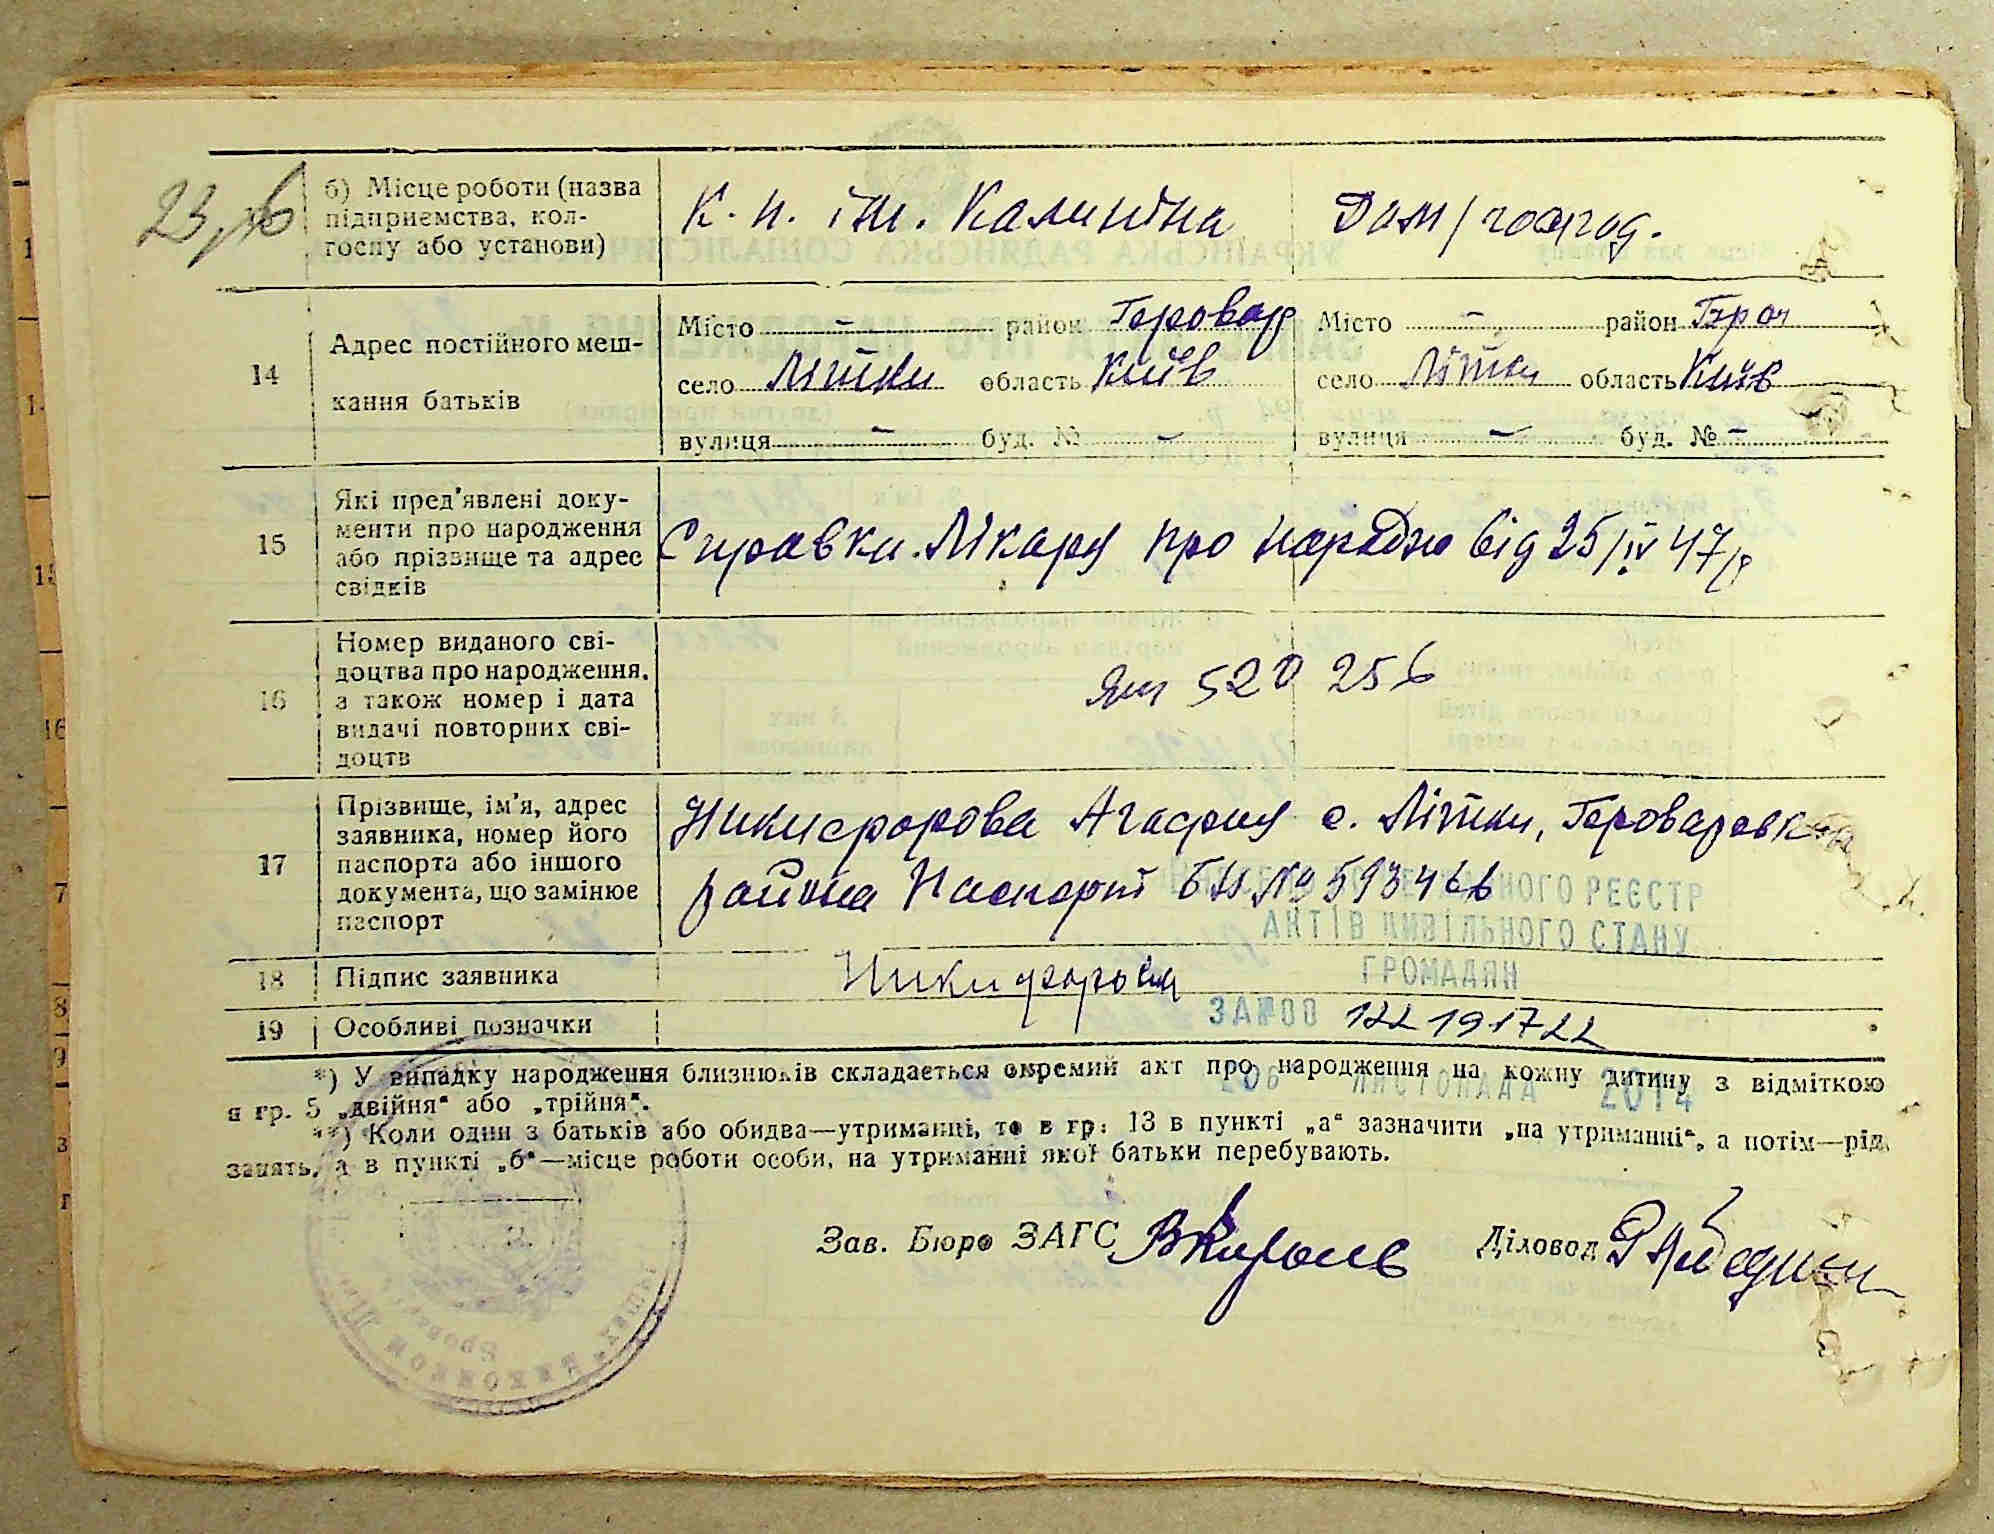 б) Місце роботи (назва
підприємства, кол-
госпу або установи)
К. п. ім. Калиніна
Дом/господ.
14
Адрес постійного меш-
кання батьків
Місто – район Бровар
село Літки область Київ
вулиця – буд. № –
Місто – район Бров
село Літки область Київ
вулиця – буд. № –
15
Які пред'явлені доку-
менти про народження
або прізвище та адрес
свідків
Справка Лікаря про народж від 25/IV 47 р
16
Номер виданого сві-
доцтва про народження,
а також номер і дата
видачі повторних сві-
доцтв
520 256
17
Прізвище, ім'я, адрес
заявника, номер його
паспорта або іншого
документа, що замінює
паспорт
Никифорова Агафия с. Літки, Броваревск
района Паспорт БН № 593466
НОГО РЕЄСТР
АКТІВ ЦИВІЛЬНОГО СТАНУ
ГРОМАДЯН
18
Підпис заявника
Никифорова
19
Особливі позначки
ЗА №00 122191722
06 ЛИСТОПАДА 2014
*) У випадку народження близнюків складається окремий акт про народження на кожну дитину з відміткою
в гр. 5 „двійня“ або „трійня“.
**) Коли один з батьків або обидва—утриманці, то в гр. 13 в пункті „а“ зазначити „на утриманні“, а потім—рід
занять, а в пункті „б“—місце роботи особи, на утриманні якої батьки перебувають.
Зав. Бюро ЗАГС
Діловод